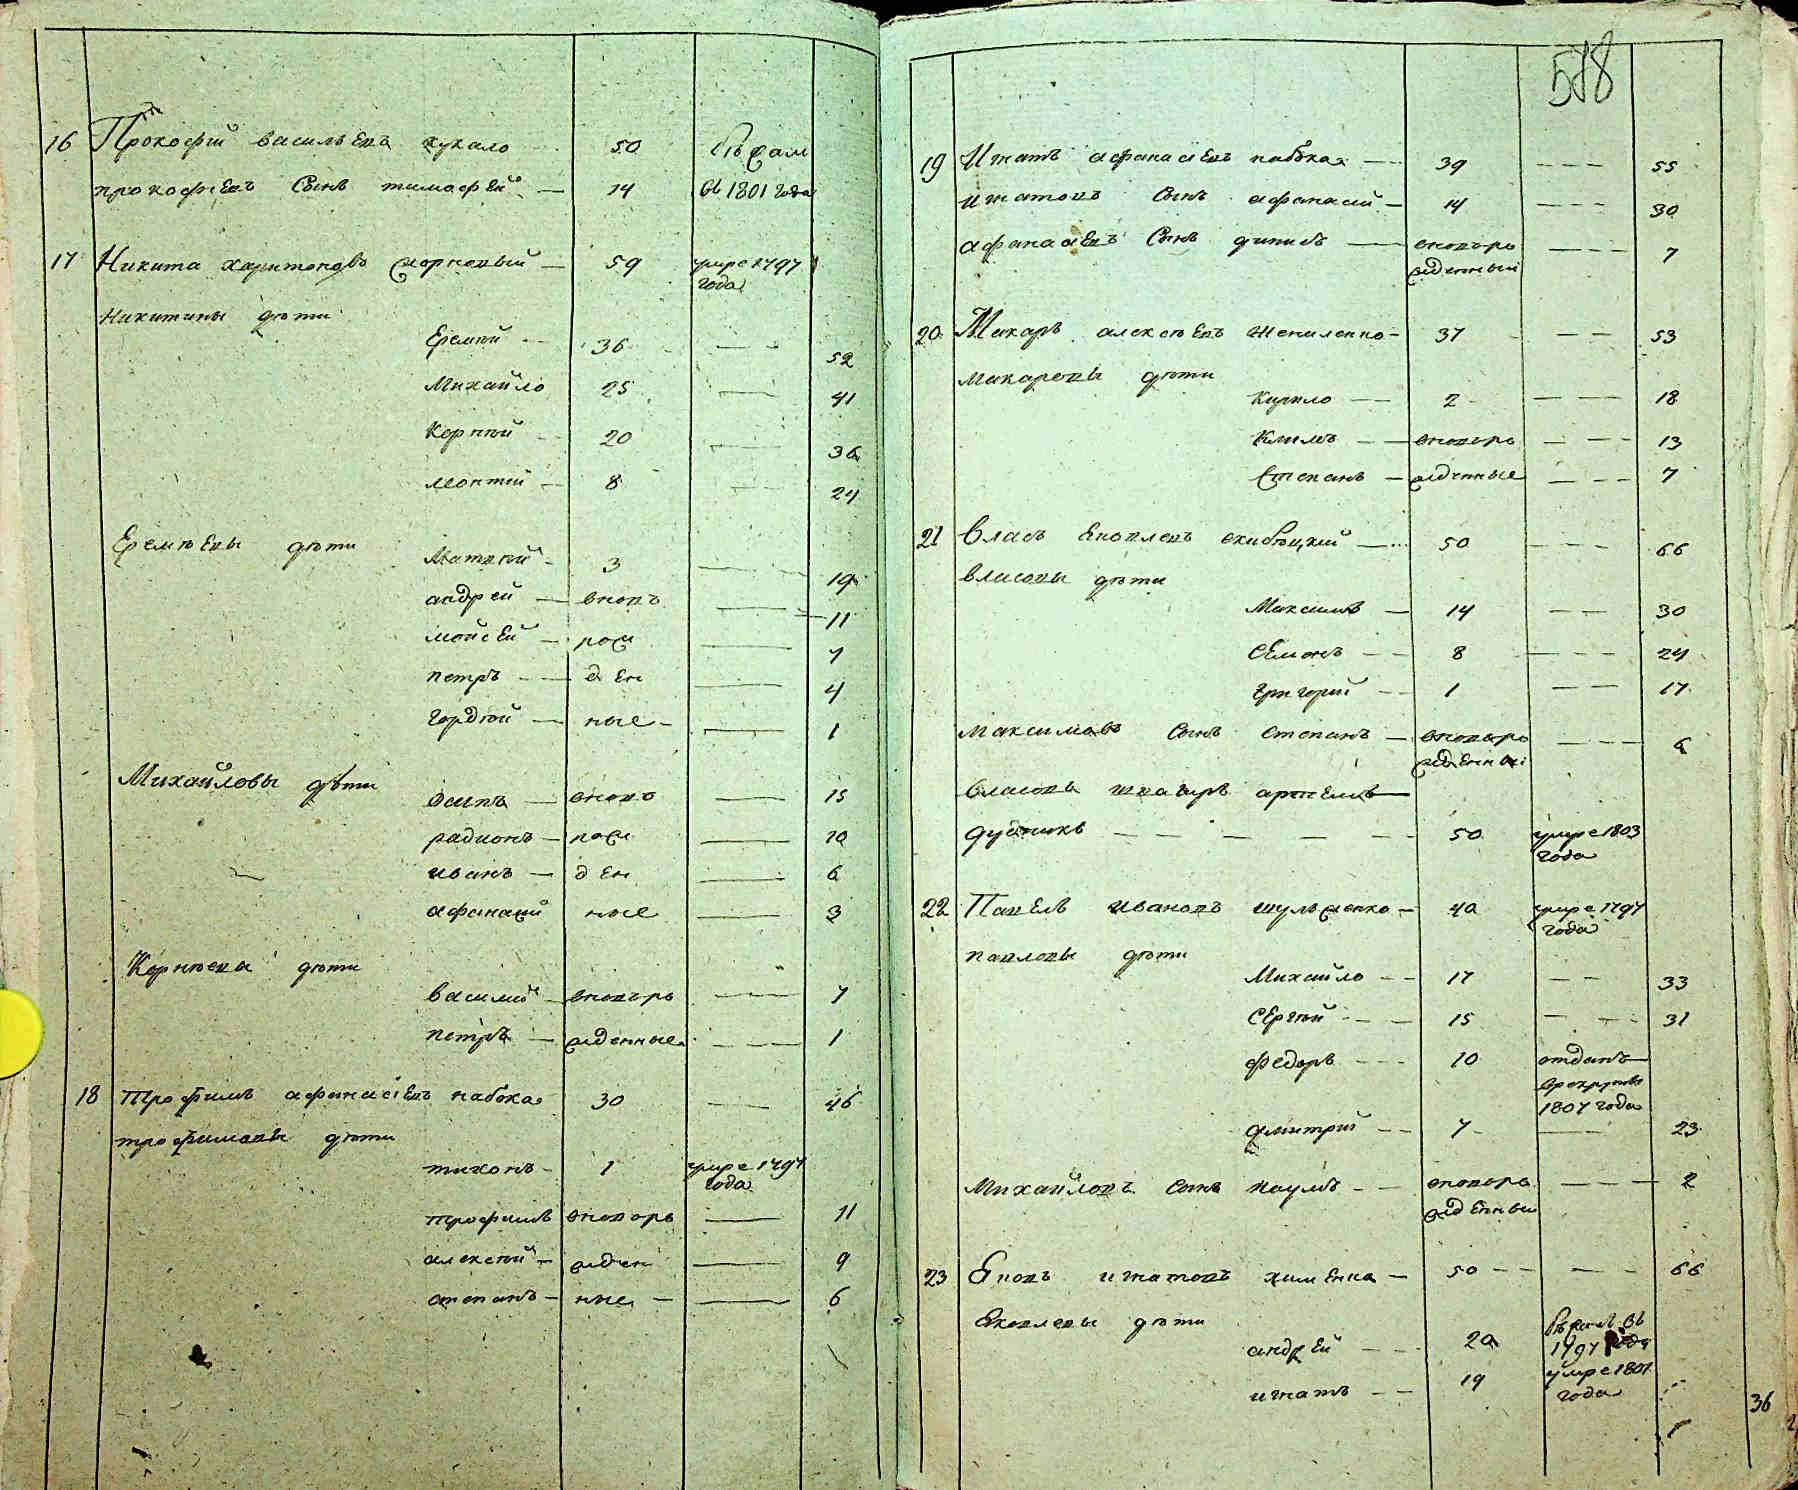 16 Прокофий васильевъ кукало 50 бежал
прокофьевъ сынъ тимофей — 14 въ 1801 года
17 Никита харитоновъ — 59 умре 1797 года
Никитины дѣти
Еремѣй — 36 — 52
Михайло 25 — 41
Корнѣй 20 — 36
леонтий — 8 — 24
Еремѣевы дѣти
Матвѣй — 3 — 19
андрей — вновь — 11
мойсей — рож — 7
петръ — ден — 4
гордѣй — ные — 1
Михайловы дѣти
осипъ — вновь — 15
радионъ — рож — 10
иванъ — ден — 6
афанасий ные — 3
Корнѣевы дѣти
василий — вновъро — 7
петръ — жденные — 1
18 трофимъ афанасіевъ набока 30 — 46
трофимовы дѣти
тихонъ — 1 умре 1797 года
трофимъ вновъро — 11
алексѣй — жден — 9
степанъ — ные — 6
578
19 Игнатъ афанасіевъ набока — 39 — 55
игнатовъ сынъ афанасий — 14 — 30
афанасіевъ сынъ денисъ — вновъро жденный — 7
20 Макаръ алексѣевъ шепиленко — 37 — 53
макаровы дѣти
Кирило — 2 — 18
Климъ — вновъро — 13
Степанъ — жденные — 7
21 Власъ яковлевъ — 50 — 66
власовы дѣти
Максимъ — 14 — 30
семенъ — 8 — 24
григорий — 1 — 17
максимовъ сынъ степанъ — вновъро жденный — 6
власовъ шваеръ артемъ —
дудникъ — 50 умре 1803 года
22 Павелъ ивановъ шульженко — 40 умре 1797 года
павловы дѣти
Михайло — 17 — 33
сергѣй — 15 — 31
федоръ — 10 отданъ
врекруты
1807 года
дмитрий — 7 — 23
михайловъ сынъ наумъ — вновъро жденный — 2
23 яковъ игнатовъ хименка — 50 — 66
яковлевы дѣти
андрей — 20 бежал въ 1797 года
игнатъ — 19 умре 1801 года
36